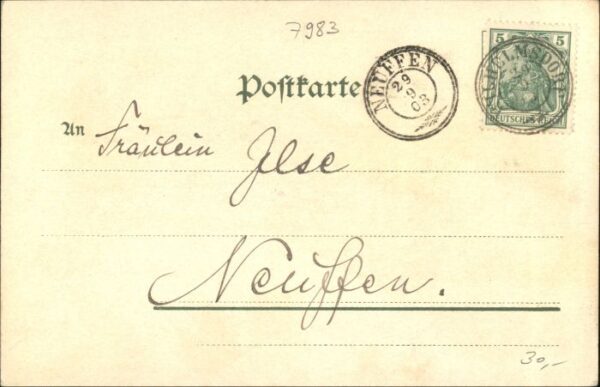 7983
5 5
DEUTSCHES REICH
NEUFFEN
29
9
03
Postkarte
An Fräulein Ilse
Neuffen.
30,-